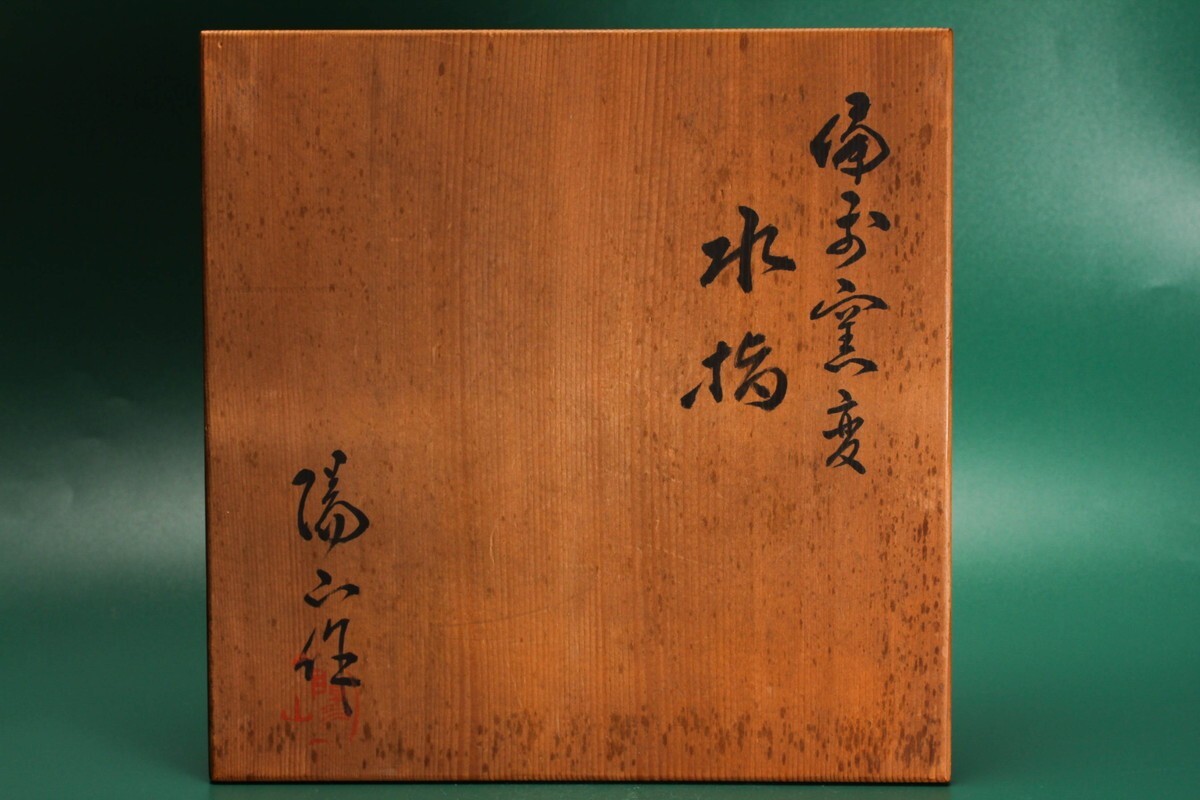 備前窯変
水指
陽山作